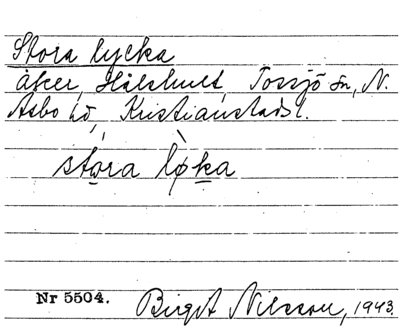 Stora lycka
åker, Hålshult, Tossjö sn, N.
Åsbo hd, Kristianstads l.
stora løka
Nr 5504.
Birgit Nilsson, 1943.